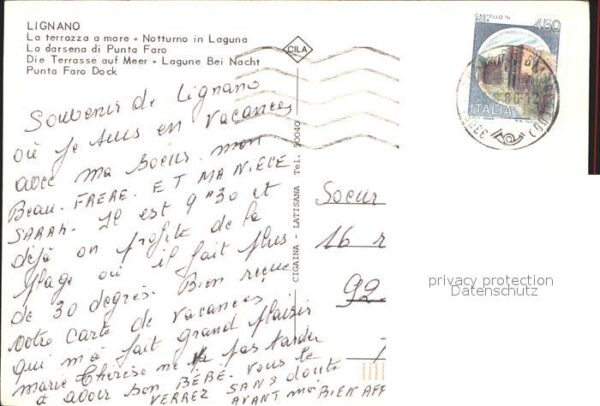 LIGNANO
La terrazza a mare - Notturno in Laguna
La darsena di Punta Faro
Die Terrasse auf Meer - Lagune Bei Nacht
Punta Faro Dock
CILA
CASTELLO DI
450
ITALIA
Souvenir de Lignano
où je suis en vacances
avec ma soeur. mon
Beau. FRERE. ET MA NIECE
SARAH. Il est 9 H 30 et
déjà on profite de la
plage où il fait plus
de 30 degrés. Bien reçue
votre carte de vacances
qui m'a fait grand plaisir
marie Thérèse ne pas tarder
à avoir son BÉBÉ. vous le
VERREZ SANS doute
AVANT moi BIEN AFF
CIGAINA - LATISANA Tel. 50040
Soeur
16 r
92
privacy protection
Datenschutz